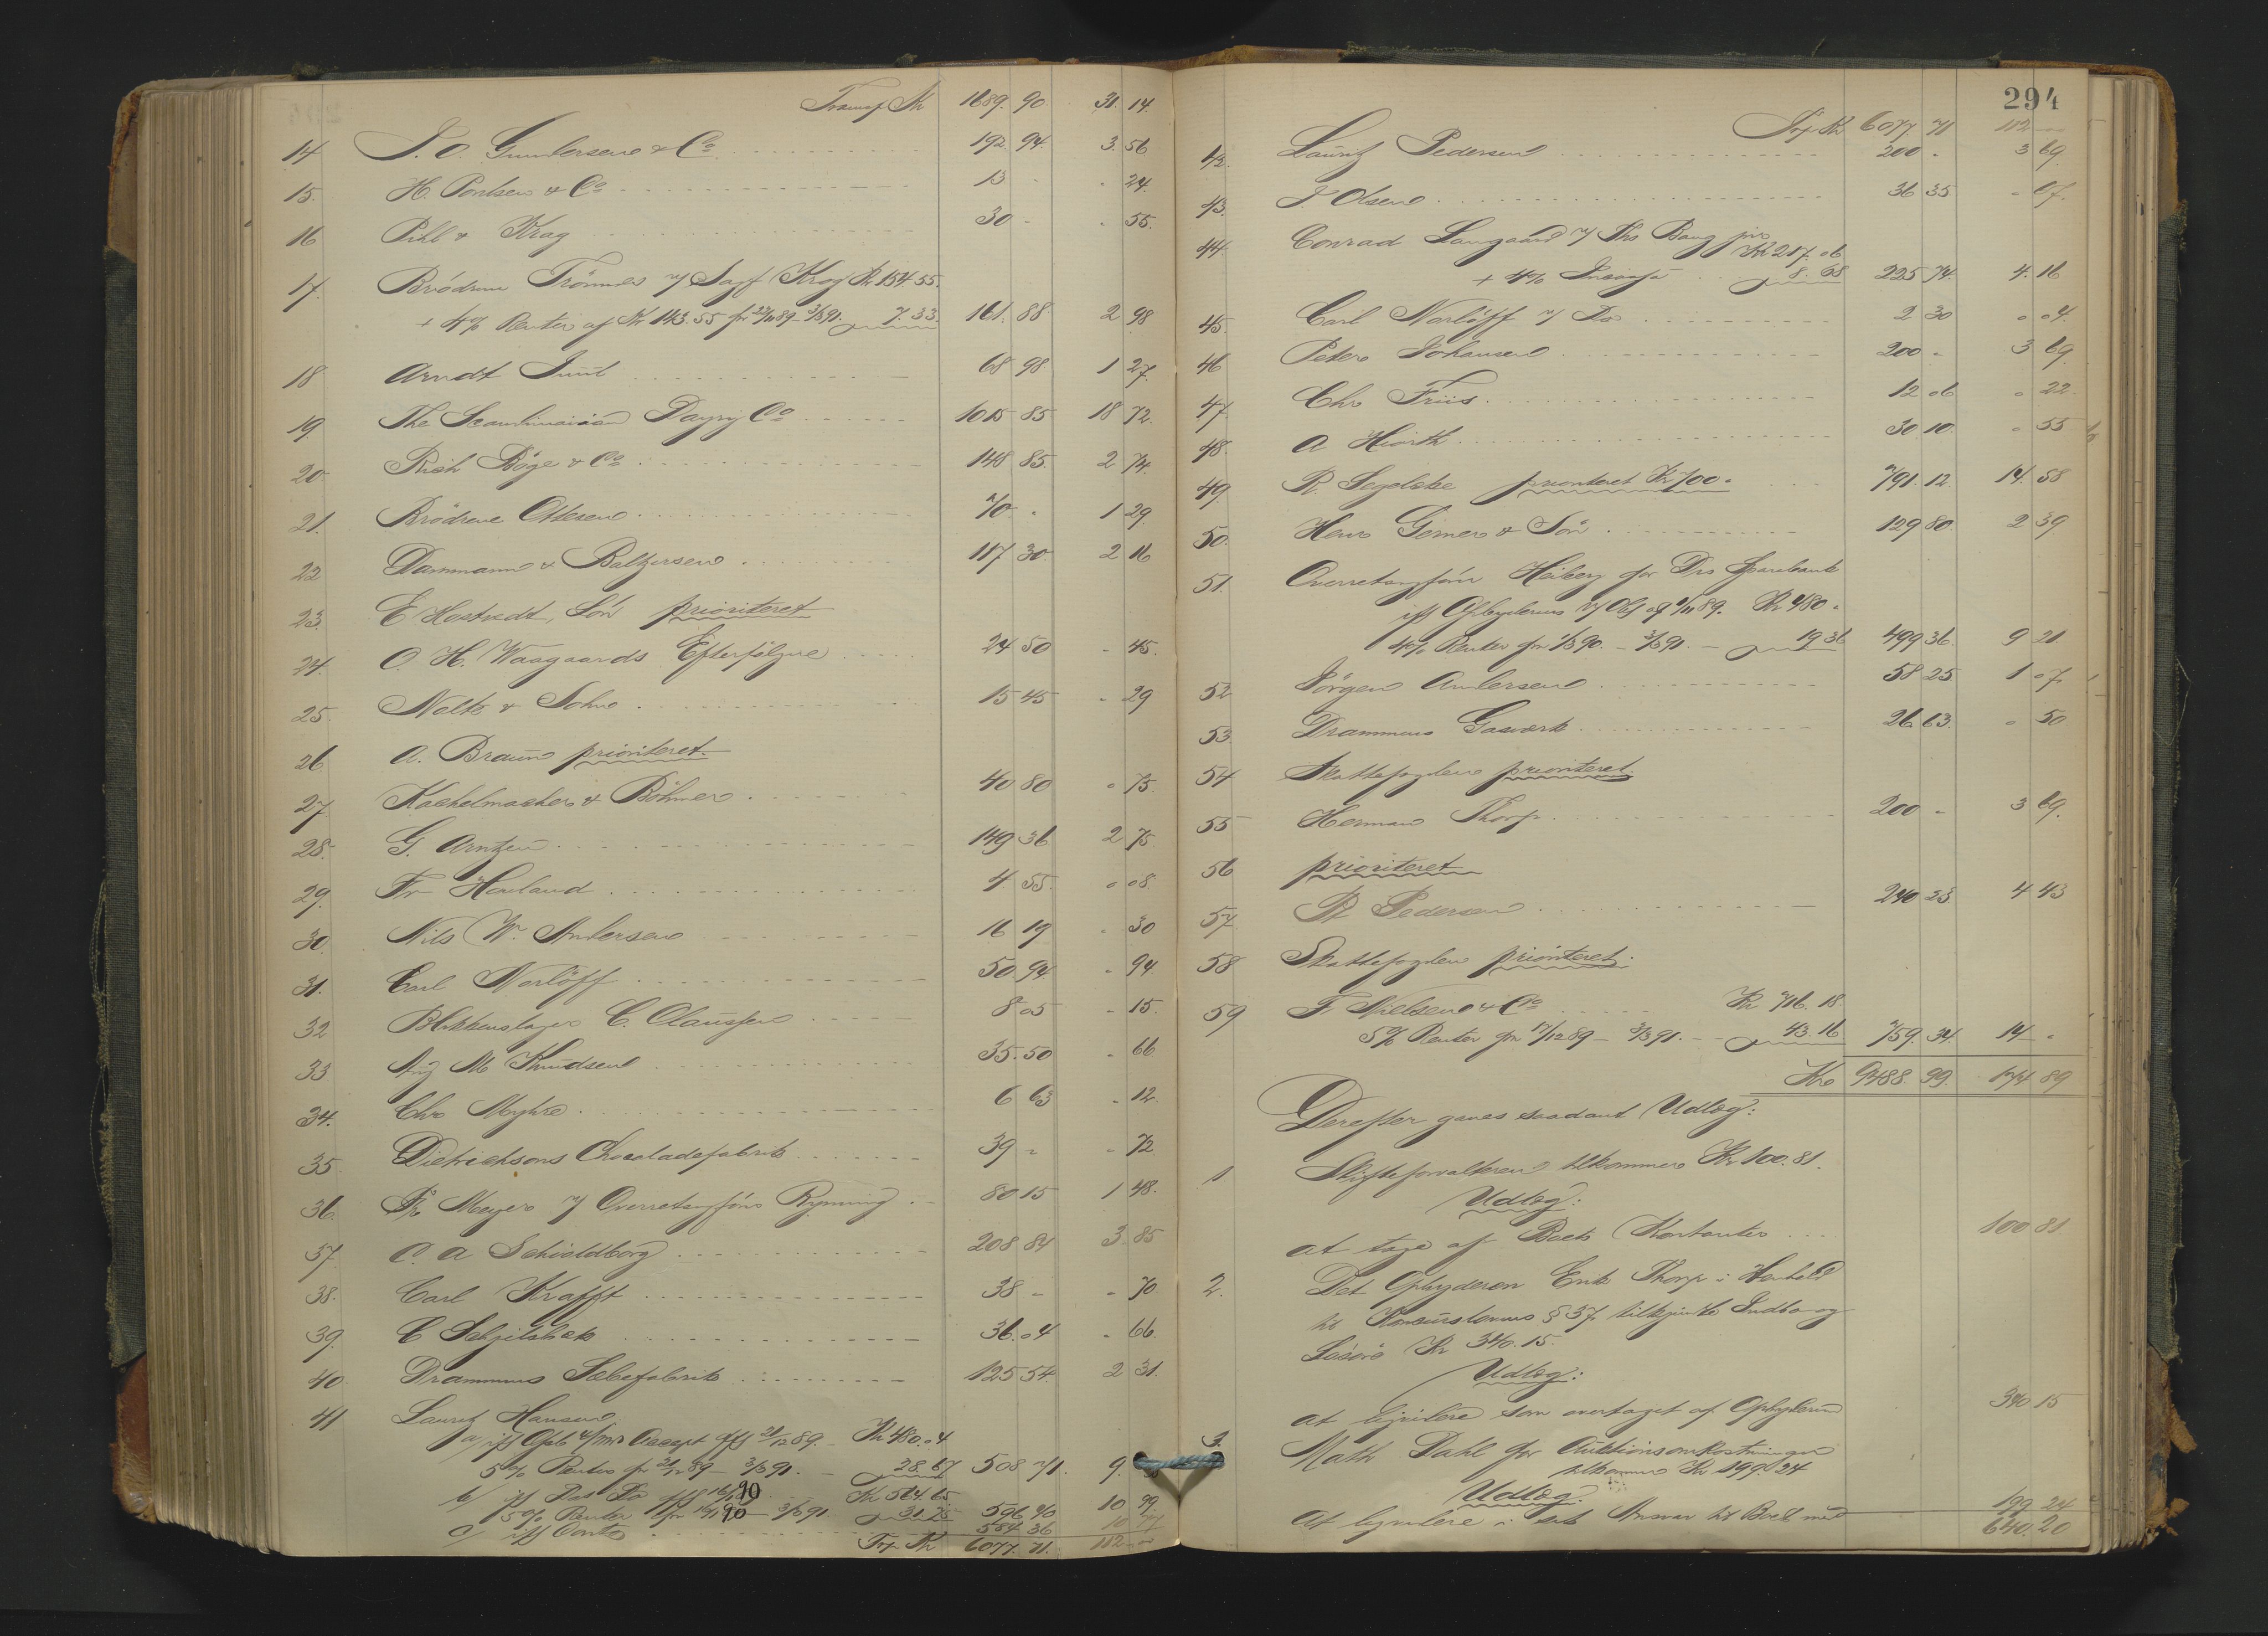 Transp Kr 1689. 90. 31 14.
14 J. O. Gundersen & Co 192. 94. 3. 56
15. H. Poulsen & Co 13 - - 24.
16 Pihl & Krag 30 - - 55.
17. Brödrene Trönnes v/ Sagf Krag Kr 154 55.
+ 4% Renter af Kr 143. 55 fr 22/11 89 - 3/3 91. 7. 33. 161. 88. 2 98
18 Arndt Juul 68 98 1 27.
19 The Scandinavian Dayry Co 1015 85 18 72.
20. Rich Böge & Co 148 85. 2 74.
21. Brödrene Ottesen 70 - 1 29
22 Dammann & Baltzersen 117 30. 2 16
23. E Hostvedt, Sön prioriteret
24. O. H. Waagaards Efterfölgere 24 50 - 45.
25. Nolte & Sohn 15 45 - 29
26 A. Braun prioriteret.
27. Kachelmacher & Böhmer 40 80 - 75.
28. G. Arntzen 149 36 2 75
29. Fr Havland 4 55. - 08.
30. Nils W. Andersen 16 19 - 30
31. Carl Norlöff 50 94 - 94.
32 Blikkenslager C. Claussen 8 05 - 15.
33 Aug M Knudsen 35. 50 - 66
34. Chr Myhre 6 63 - 12.
35. Dietrichsons Chocoladefabrik 39 - - 72
36. Fr Meyer v/ Overretssagförer Rynning 80 15 1 48.
37. C. A Schioldborg 208 84 3 85
38. Carl Krafft 38 - - 70.
39. C 36. 04 - 66.
40. Drammens Sæbefabrik 125 54. 2 31.
41 Lauritz Hansen
a/ iflg Opb m/ Accept 21/12 89. Kr 480. 04
5% Renter fr 21/12 89 - 3/3 91. 28. 67 508 71. 9. 38
b/ iflg Do Do 16/1 90 Kr 564. 65
5% Renter fr 16/1 90 - 3/3 91 31. 75 596 40 10 99.
c/ iflg Conto 584 36 10 77
Trp Kr 6077. 71. 112 -
294
Trp Kr 6077. 71 112 -
42. Lauritz Pedersen 200 - 3 69.
43. J. Olsen 36 35 - 67.
44. Conrad Langaard v/ Ths Bang jun Kr 217. 06
+ 4% 8. 68 225 74. 4. 16
45. Carl Norlöff v/ Do 2 30 - 04.
46 Peter Johansen 200 - 3 69.
47. Chr Friis 12 06 - 22.
48. A Hiorth 30 10. - 55
49 R. prioriteret Kr 700 - 791 12 14. 58
50. Henr Gerner & Sön 129 80. 2 39
51. Overretssagförer Heiberg for Drs Sparebank
iflg Opbyderens v/ Obl af 1/11 89. Kr 480 -
4% Renter fra 1/3 90. - 3/3 91. - 19 36 499 36. 9 21
52. Jörgen Andersen 58 25 1 07.
53. Drammens Gasværk 26. 63. - 50
54 Skattefogden prioriteret.
55 Herman Thorp 200 - 3 69.
56 prioriteret
57. R. Pedersen 240 23. 4 43
58 Skattefogden prioriteret.
59 F Nielsen & Co Kr 716. 18.
5% Renter fra 17/12 89 - 3/3 91. - 43. 16 759. 34. 14 -
Kr 9488 99. 174 89
Derefter gaves saadant Udlæg:
1 Skifteforvalteren tilkommer Kr 100. 81.
Udlæg:
at tage af Boets Kontanter 100 81
2. Det Opbyderen Erik Thorp i Henhold
til Konkurslovens § 37. tilkjendte Indbo og
Lösöre Kr 340. 15.
Udlæg:
at liqvidere som overtaget af Opbyderen 340 15
3. Math Dahl for Auktionsomkostninger
tilkommer Kr 199. 24
Udlæg:
At liqvidere i sit Ansvar til Boet med 199 24
640. 20